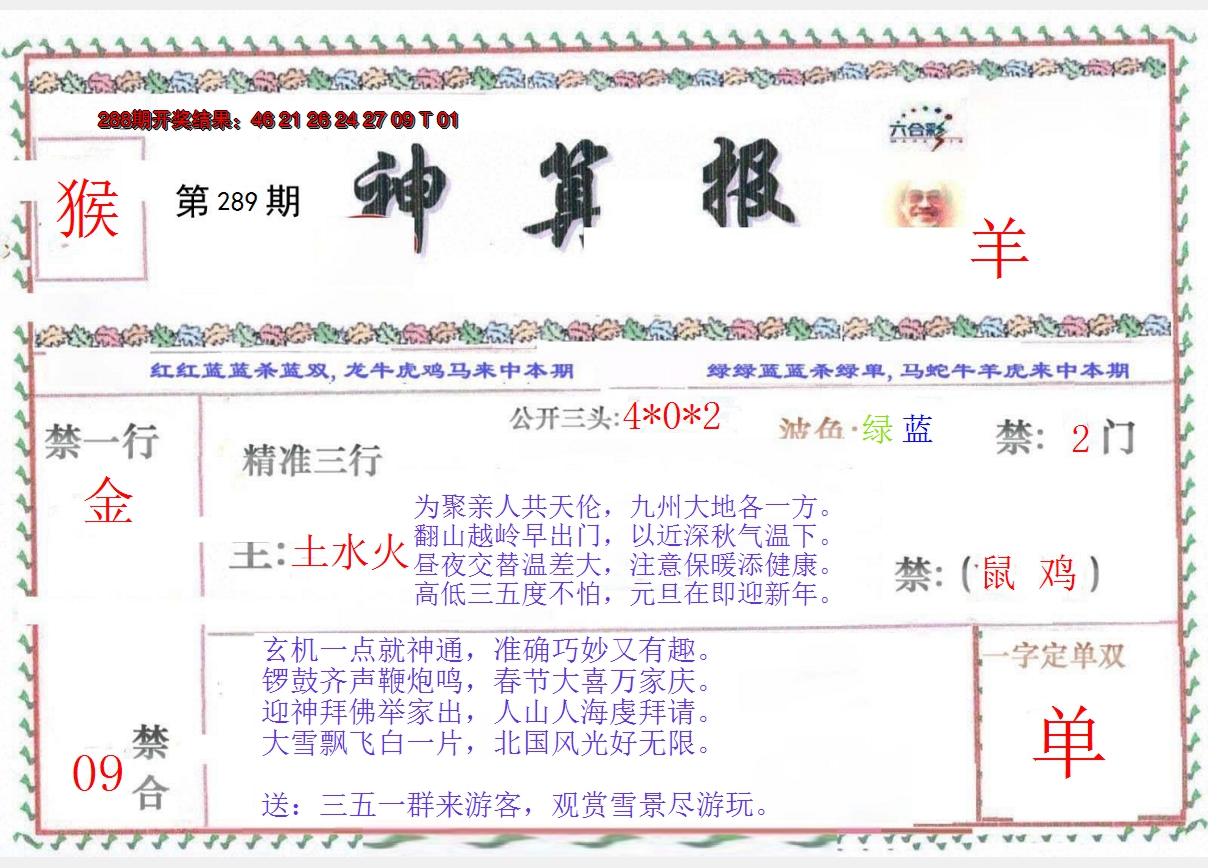 268期开奖结果：46 21 26 24 27 09 T 01
六合彩
猴
第 289 期
神 算 报
羊
红红蓝蓝杀蓝双,龙牛虎鸡马来中本期
绿绿蓝蓝杀绿单,马蛇牛羊虎来中本期
公开三头:4*0*2
波色·绿 蓝
禁: 2 门
禁一行
金
精准三行
主:土水火
为聚亲人共天伦，九州大地各一方。
翻山越岭早出门，以近深秋气温下。
昼夜交替温差大，注意保暖添健康。
高低三五度不怕，元旦在即迎新年。
禁:(鼠 鸡)
玄机一点就神通，准确巧妙又有趣。
锣鼓齐声鞭炮鸣，春节大喜万家庆。
迎神拜佛举家出，人山人海虔拜请。
大雪飘飞白一片，北国风光好无限。
送：三五一群来游客，观赏雪景尽游玩。
09
禁合
一字定单双
单